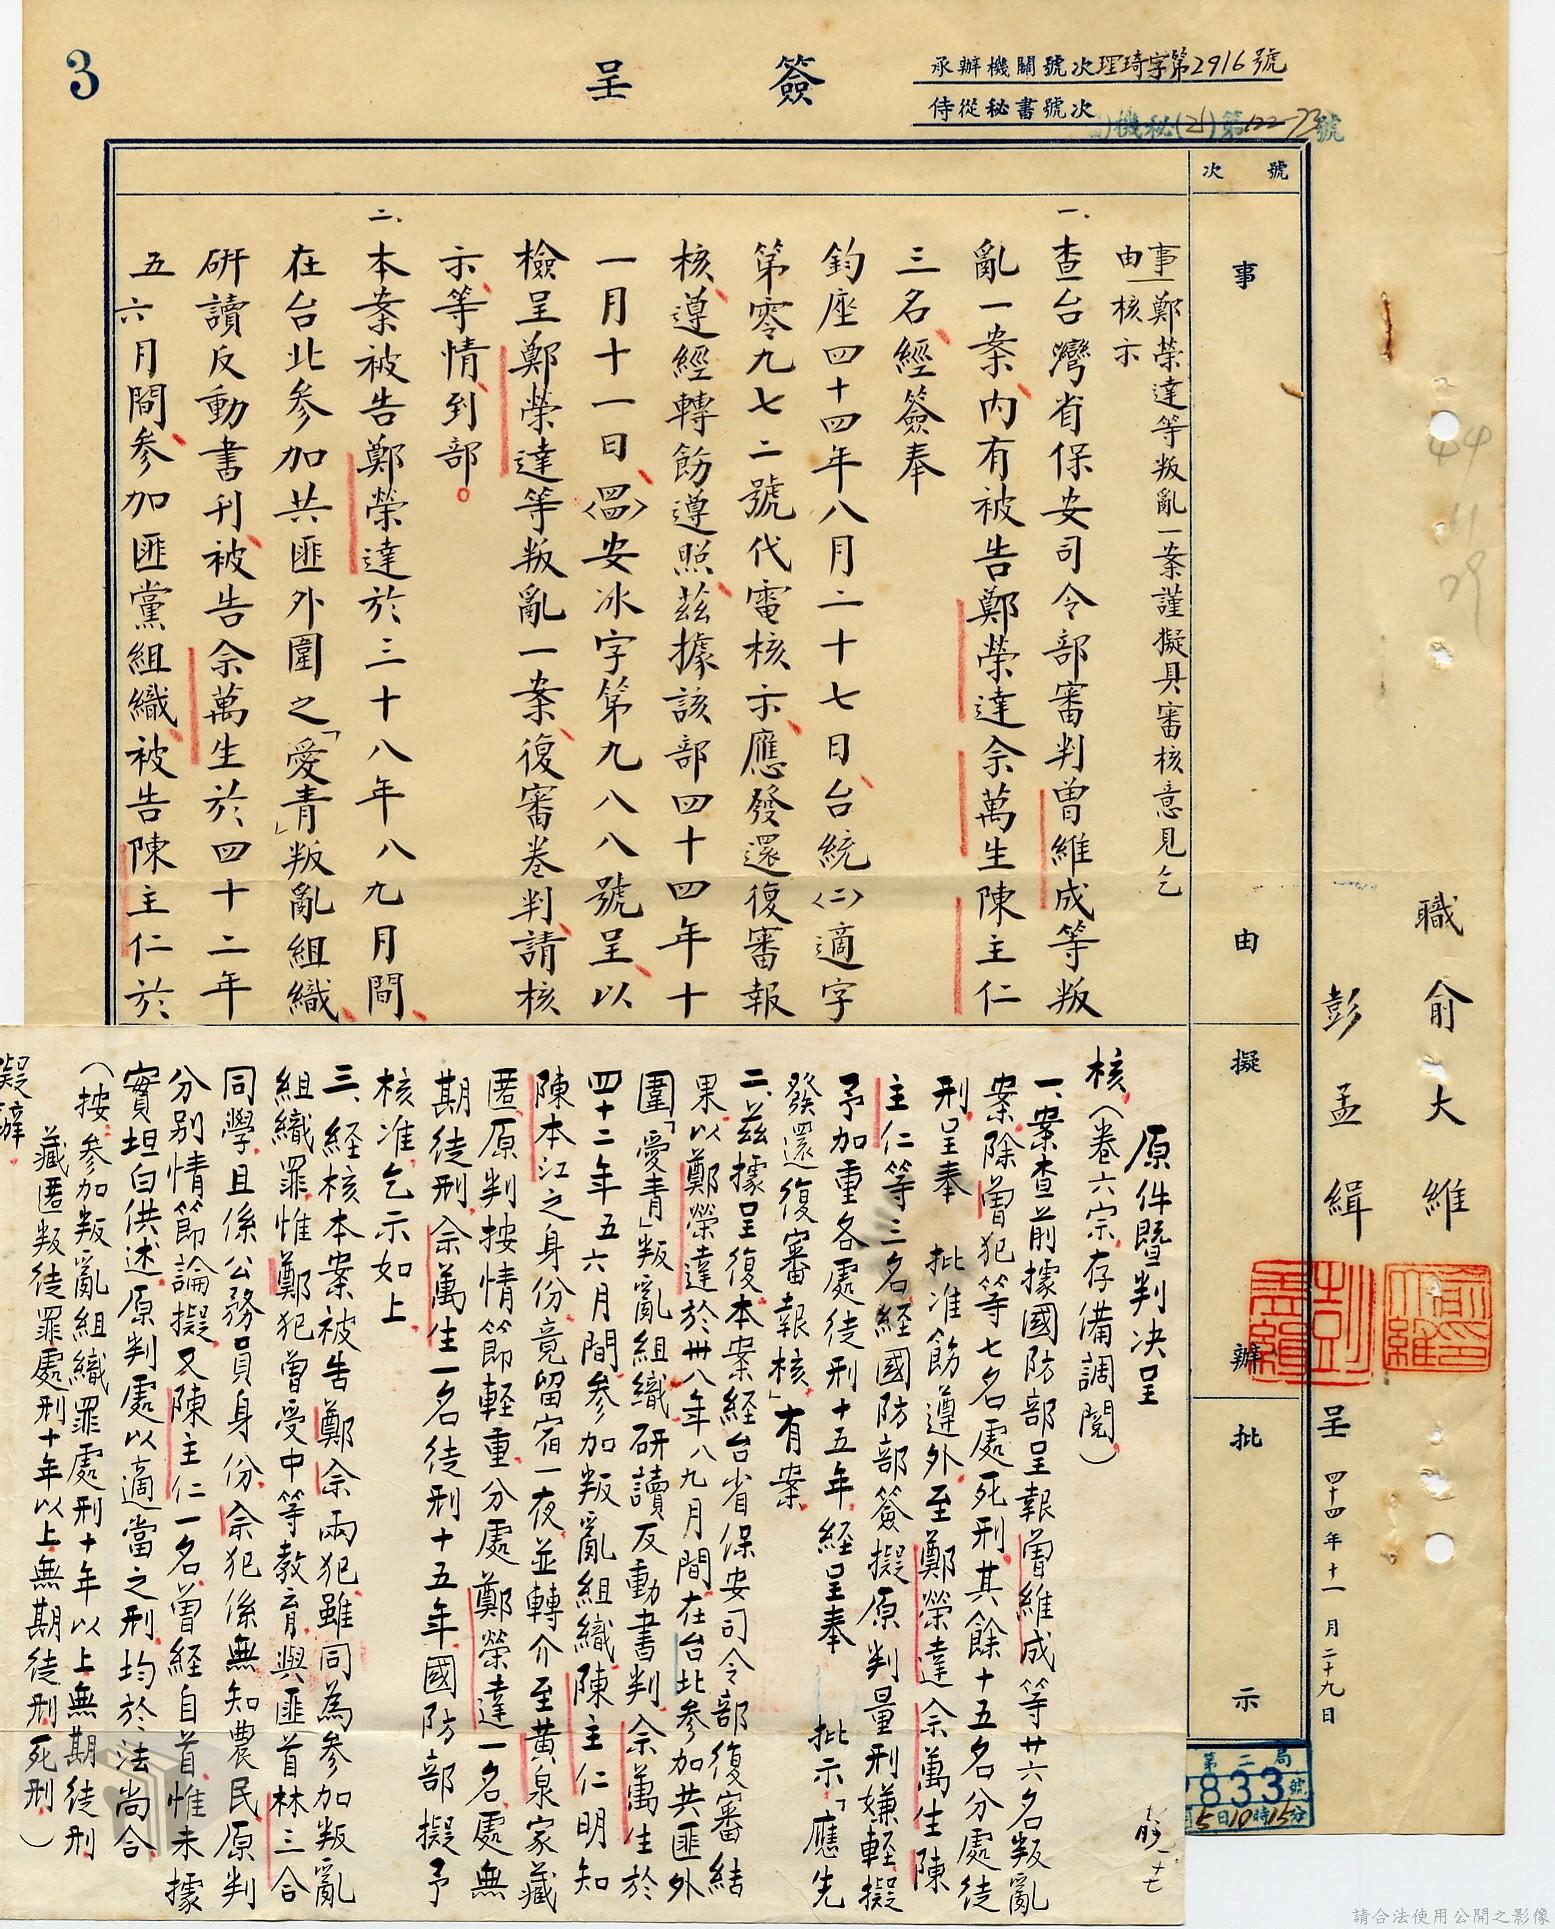 3
簽呈
承辦機關號次理琦字第2916號
侍從秘書號次
機秘(21)第122-73號
號次
事由
擬辦
批示
44
11
29
職俞大維
彭孟緝
呈 四十四年十一月二十九日
事由 鄭榮達等叛亂一案謹擬具審核意見乞
核示
一、查台灣省保安司令部審判曾維成等叛
亂一案、內有被告鄭榮達佘萬生陳主仁
三名、經簽奉
鈞座四十四年八月二十七日台統〈二〉適字
第零九七二號代電核示、應發還復審報
核、遵經轉飭遵照、茲據該部四十四年十
一月十一日、〈四四〉安冰字第九八八號呈、以
檢呈鄭榮達等叛亂一案、復審卷判、請核
示、等情、到部。
二、本案被告鄭榮達於三十八年八九月間、
在台北參加共匪外圍之「愛青」叛亂組織、
研讀反動書刊、被告佘萬生於四十二年
五六月間、參加匪黨組織、被告陳主仁於
原件暨判決呈
核、(卷六宗存備調閱)
一、案查前據國防部呈報曾維成等廿六名叛亂
案、除曾犯等七名處死刑、其餘十五名分處徒
刑、呈奉 批准飭遵外、至鄭榮達佘萬生陳
主仁等三名、經國防部簽擬原判量刑嫌輕、擬
予加重各處徒刑十五年、經呈奉 批示「應先
發還復審報核」有案、
二、茲據呈復本案經台省保安司令部復審結
果、以鄭榮達於卅八年八九月間、在台北參加共匪外
圍「愛青」叛亂組織、研讀反動書刊、佘萬生於
四十二年五六月間、參加叛亂組織、陳主仁明知
陳本江之身份、竟留宿一夜、並轉介至黃泉家藏
匿、原判按情節輕重、分處鄭榮達一名處無
期徒刑、佘萬生一名徒刑十五年、國防部擬予
核准、乞示如上、
三、經核本案被告鄭佘兩犯、雖同為參加叛亂
組織罪、惟鄭犯曾受中等教育、與匪首林三合
同學、且係公務員身份、佘犯係無知農民、原判
分別情節論擬、又陳主仁一名、曾經自首、惟未據
實坦白供述、原判處以適當之刑、均於法尚合
(按、參加叛亂組織罪處刑十年以上、無期徒刑、
藏匿叛徒罪處刑十年以上、無期徒刑、死刑、)
擬辦、
第二局
833號
5日10時15分
請合法使用公開之影像